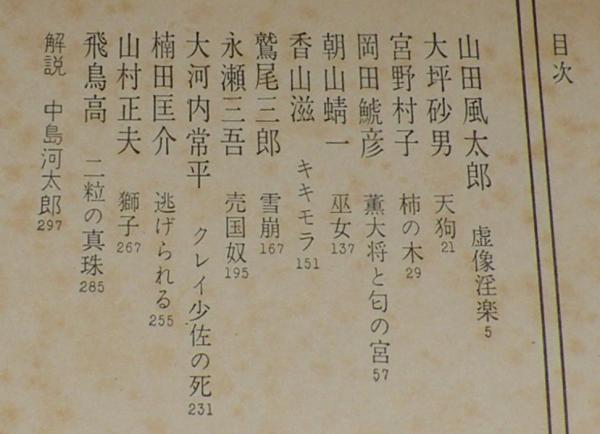 目次
山田風太郎 虚像淫楽5
大坪砂男 天狗21
宮野村子 柿の木29
岡田鯱彦 薫大将と匂の宮57
朝山蜻一 巫女137
香山滋 キキモラ151
鷲尾三郎 雪崩167
永瀬三吾 売国奴195
大河内常平 クレイ少佐の死231
楠田匡介 逃げられる255
山村正夫 獅子267
飛鳥高 二粒の真珠285
解説 中島河太郎297